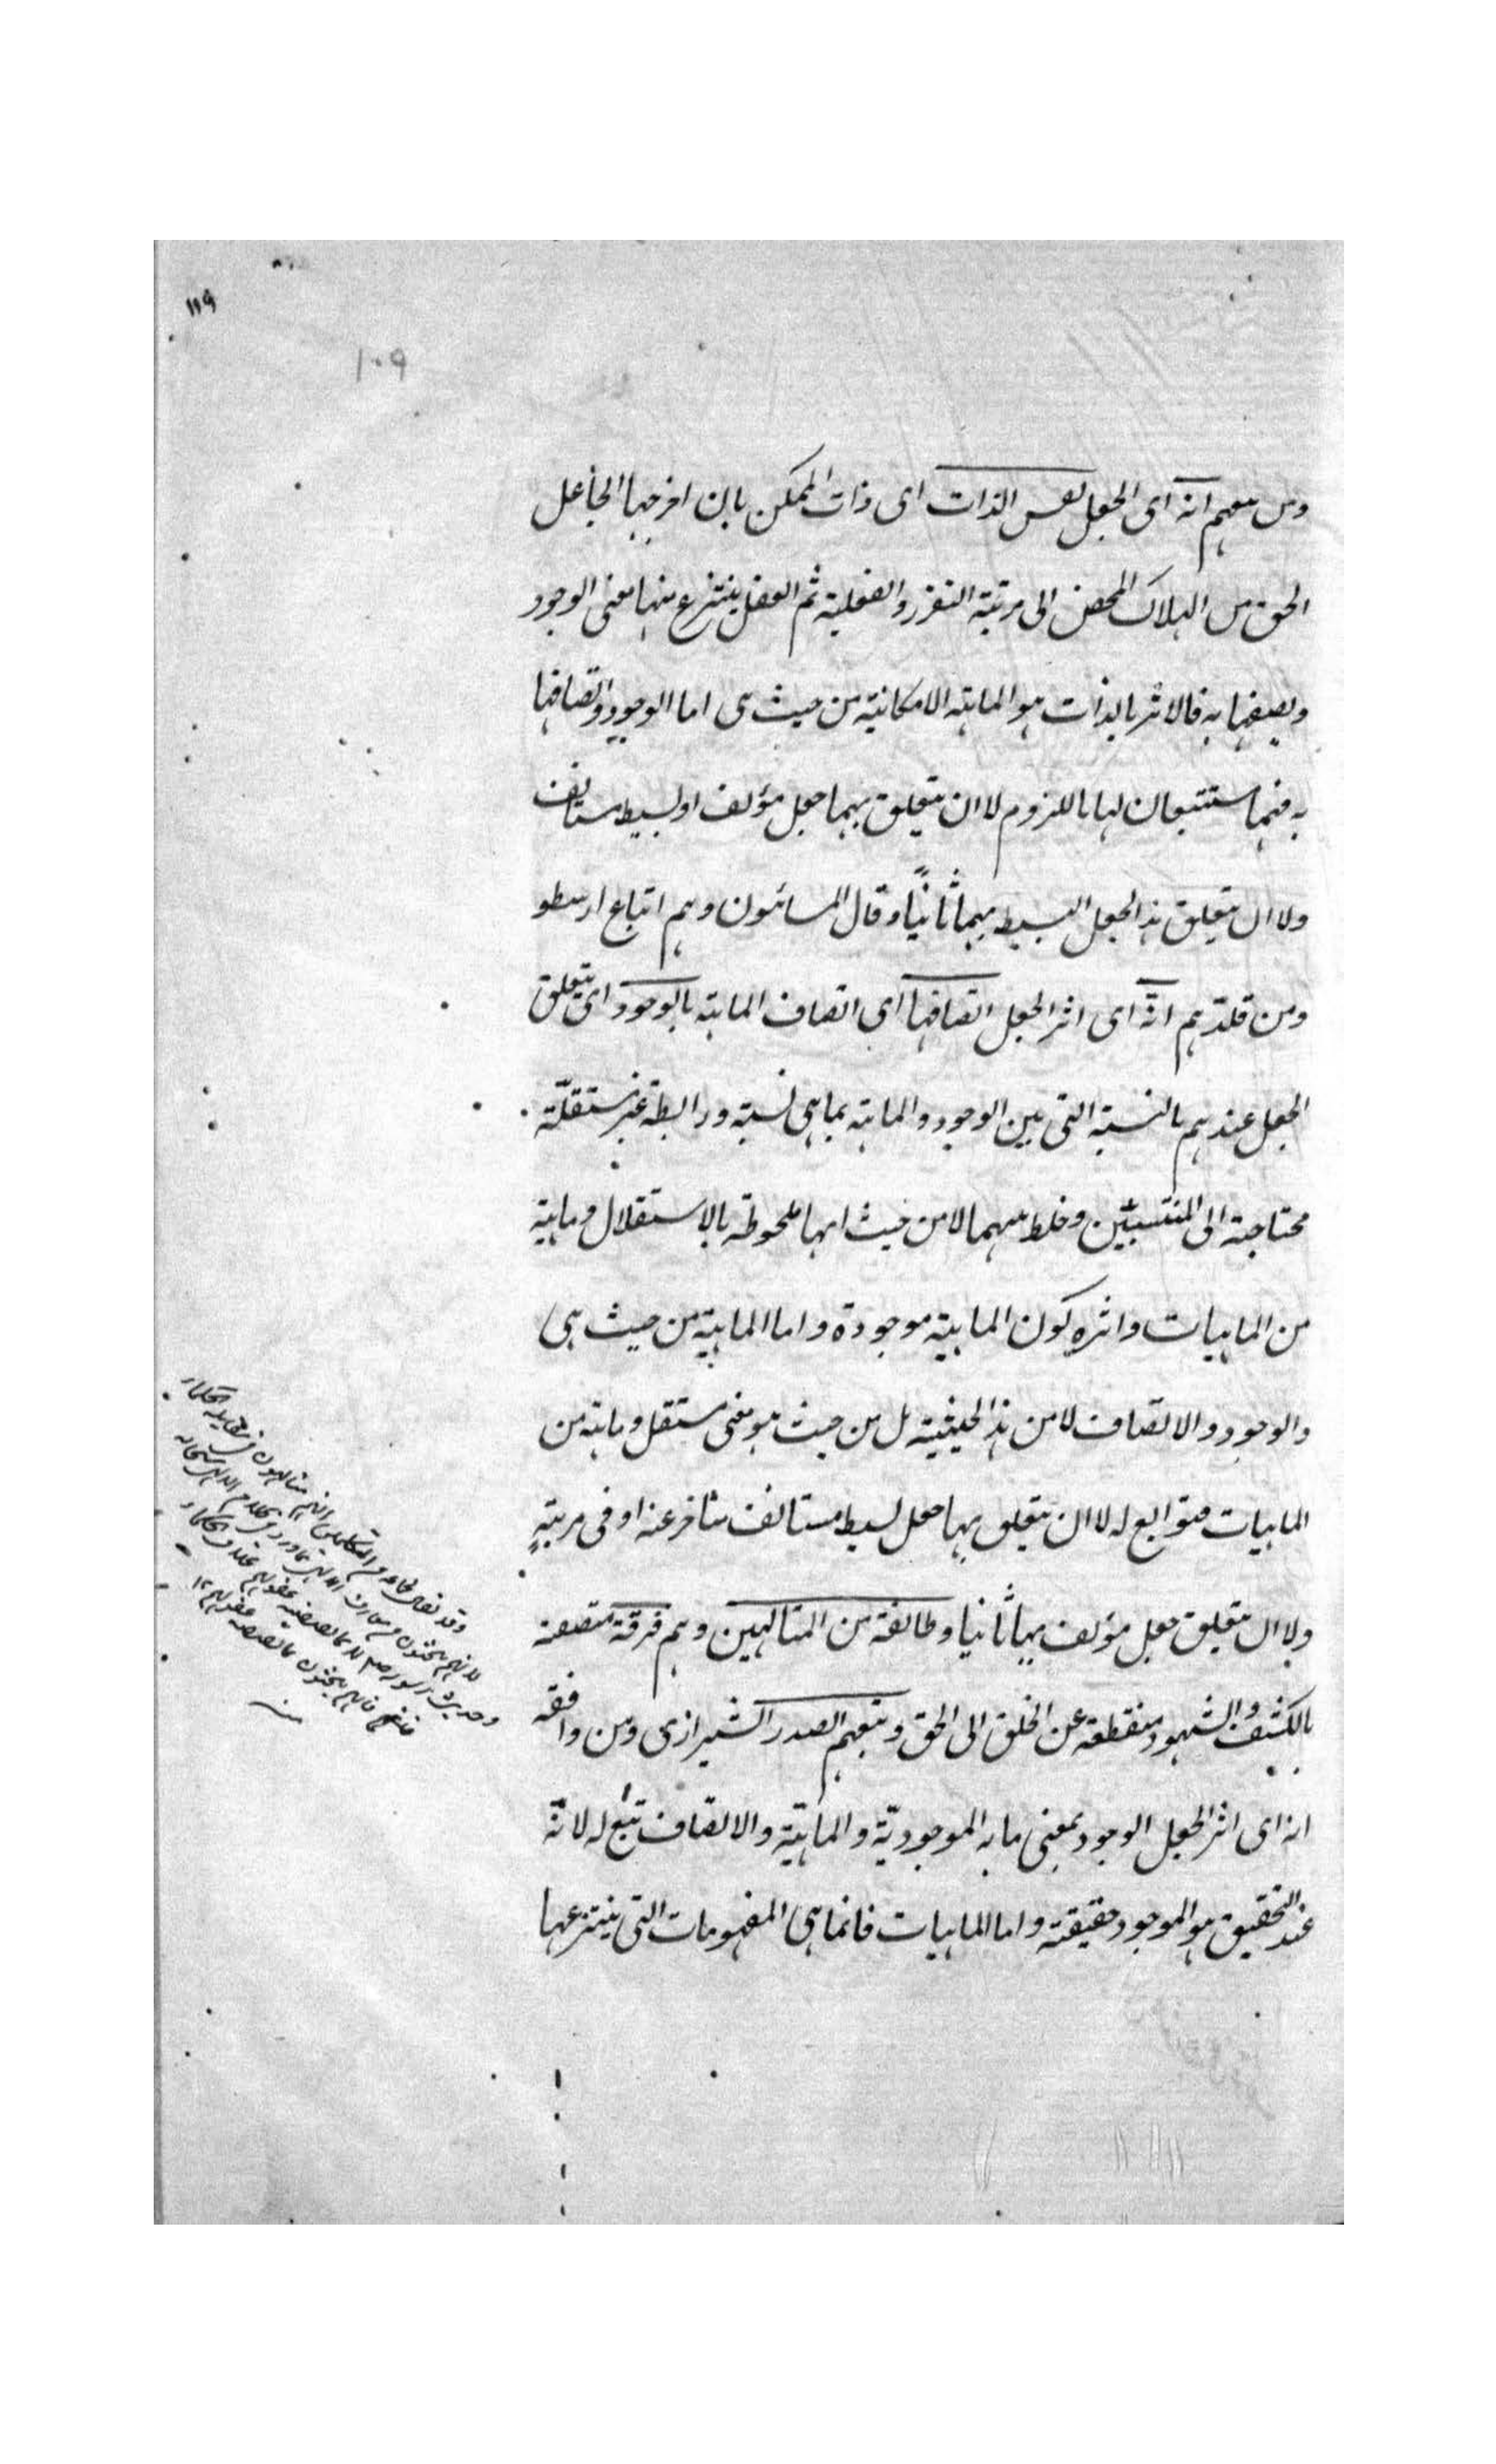 ١١٩
١٠٩
ومن معهم انه اى الجعل نفس الذات اى ذات الممكن بان اخرجها الجاعل
الحق من الهلاك المحض الى مرتبة التقرر والفعلية ثم العقل ينتزع منها معنى الوجود
ويصفها به فالاثر بالذات هو الماهية الامكانية من حيث هى اما الوجود واتصافها
به فهما مستتبعان لها باللزوم لا ان يتعلق بهما جعل مؤلف او بسيط مستانف
ولا ان يتعلق هذا الجعل البسيط بهما ثانيًا وقال المشائون وهم اتباع ارسطو
ومن قلدهم انّه اى اثر الجعل اتصافها اى اتصاف الماهية بالوجود اى يتعلق
الجعل عندهم بالنسبة التى بين الوجود والماهية بما هى نسبة ورابطة غير مستقلّة
محتاجة الى المنتسبين وخلط بينهما لا من حيث انها ملحوظة بالاستقلال وماهية
من الماهيات واثره كون الماهية موجودة واما الماهية من حيث هى
والوجود والاتصاف لا من هذا الحيثية بل من حيث هو معنى مستقل وماهية من
الماهيات فتوابع له لا ان يتعلق بها جعل بسيط مستانف متاخر عنه او فى مرتبةٍ
ولا ان يتعلق جعل مؤلف بها ثانيا وطائفة من المتالهين وهم فرقة متصفة
بالكشف والشهود منقطعة عن الخلق الى الحق وتبعهم الصدر الشيرازى ومن وافقه
انه اى اثر الجعل الوجود بمعنى ما به الموجوديّة والماهيّة والاتصاف تبع له لانّه
عند التحقيق هو الموجود حقيقة واما الماهيات فانما هى المفهومات التى ينتزعها
وقد يقال لجماعة من المتكلمين انهم متالهون فى مقابلة الحكماء
لانهم يبحثون